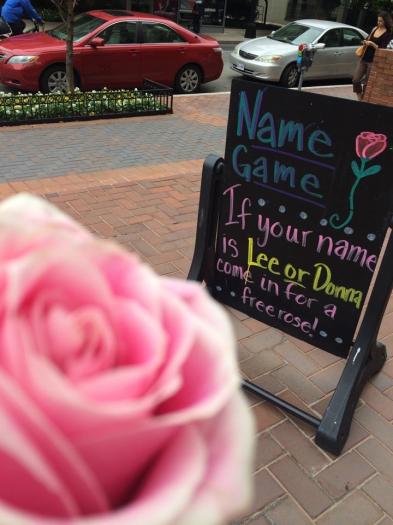 Name
Game
If your name
is Lee or Donna
come in for a
free rose!